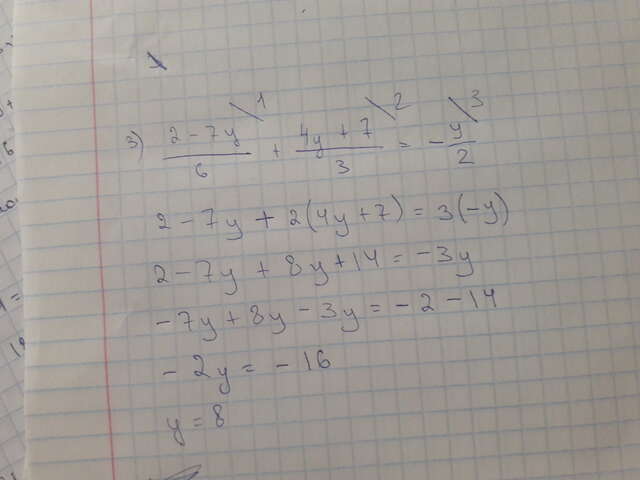 3) (2 - 7y)/6 \1 + (4y + 7)/3 \2 = -y/2 \3
2 - 7y + 2(4y + 7) = 3(-y)
2 - 7y + 8y + 14 = -3y
-7y + 8y - 3y = -2 - 14
-2y = -16
y = 8